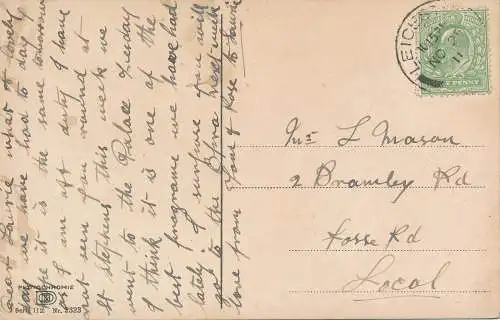 Dear Laurie what a lovely
day we have had to day I
hope it is the same tomorrow
as I am off duty I have
not seen you round at
St Stephens this week we
went to the Palace Tuesday
I think it is one of the
best programe we have had
lately I surpose you will
go to the Opera next week
love from Tom & Rose to Laurie
LEICE
NO
11
PENNY
Mr L Mason
2 Bramley Rd
Fosse Rd
Local
PHOTOCHROMIE
Serie 112 Nr. 2323